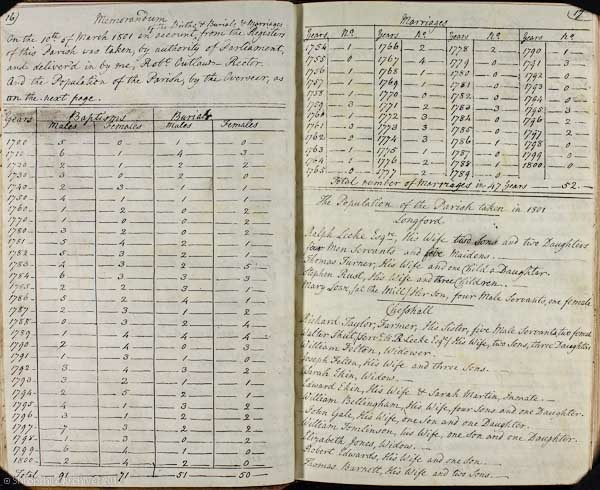 16)
Memorandum
On the 10th of March 1801 an account, from the Registers
of the Births & Burials & Marriages
of this Parish was taken, by authority of Parliament,
and deliver'd in by me, Robt. Outlaw Rector.
And the Population of the Parish, by the Overseer, as
on the next page.
Years Baptisms Burials
Males Females Males Females
1700 — 5 0 1 0
1710 — 6 1 4 3
1720 — 2 1 2 2
1730 — 3 0 2 0
1740 — 2 3 1 1
1750 — 4 1 1 1
1760 — 1 2 0 2
1770 — 1 2 0 2
1780 — 3 2 0
1781 — 5 4 2 1
1782 — 5 3 2 1
1783 — 4 2 5
1784 — 6 3 3 3
1785 — 2 2 3 1
1786 — 5 2 4 1
1787 — 2 3 1 2
1788 — 0 3 2 4
1789 — 1 4 4 4
1790 — 2 4 0 3
1791 — 1 3 1 0
1792 — 3 4 3 2
1793 — 3 2 1 1
1794 — 2 5 2 1
1795 — 4 1 3 2
1796 — 3 1 2 2
1797 — 7 3 2 2
1798 — 1 3 0 2
1799 — 6 4 1
1800 — 2 4 2 0
Total — 91 71 51 50
17
Marriages
Years No. Years No. Years No. Years No.
1754 — 1 1766 — 2 1778 — 2 1790 — 1
1755 — 0 1767 — 4 1779 — 0 1791 — 3
1756 — 1 1768 — 1 1780 — 0 1792 — 0
1757 — 1 1769 1781 — 0 1793 — 0
1758 — 1 1770 — 0 1782 1794 — 0
1759 — 3 1771 — 2 1783 1795 — 3
1760 — 1 1772 — 3 1784 — 0 1796 — 2
1761 — 3 1773 — 3 1785 — 0 1797 — 2
1762 — 0 1774 — 3 1786 — 1 1798 — 0
1763 — 1 1775 — 1 1787 1799 — 0
1764 — 1 1776 — 2 1788 1800 — 0
1765 — 0 1777 — 2 1789
Total number of Marriages in 47 Years — 52.
The Population of the Parish taken in 1801
Longford
Ralph Leeke Esqr., His Wife two Sons and two Daughters
four Men Servants and five Maidens.
Thomas Turner, His Wife and one Child a Daughter.
Stephen Rust, His Wife and three Children.
Mary (at the Mill) Her Son, four Male Servants, one female
Cheshall
Richard Taylor, Farmer, His Sister, five Male Servants, two female
Walter Shutt, Servt. to R. Leeke Esqr. His Wife, two Sons, three Daughters
William Felton, Widower.
Joseph Felton, His Wife and three Sons.
Sarah Ekin, Widow.
Edward Ekin, His Wife & Sarah Martin, Inmate.
William Bellingham, His Wife, four Sons and one Daughter.
John Gale, His Wife, one Son and one Daughter.
William Tomlinson, his Wife, one Son and one Daughter.
Elizabeth Jones, Widow.
Robert Edwards, His Wife and one Son.
Thomas Barnett, His Wife and two Sons.